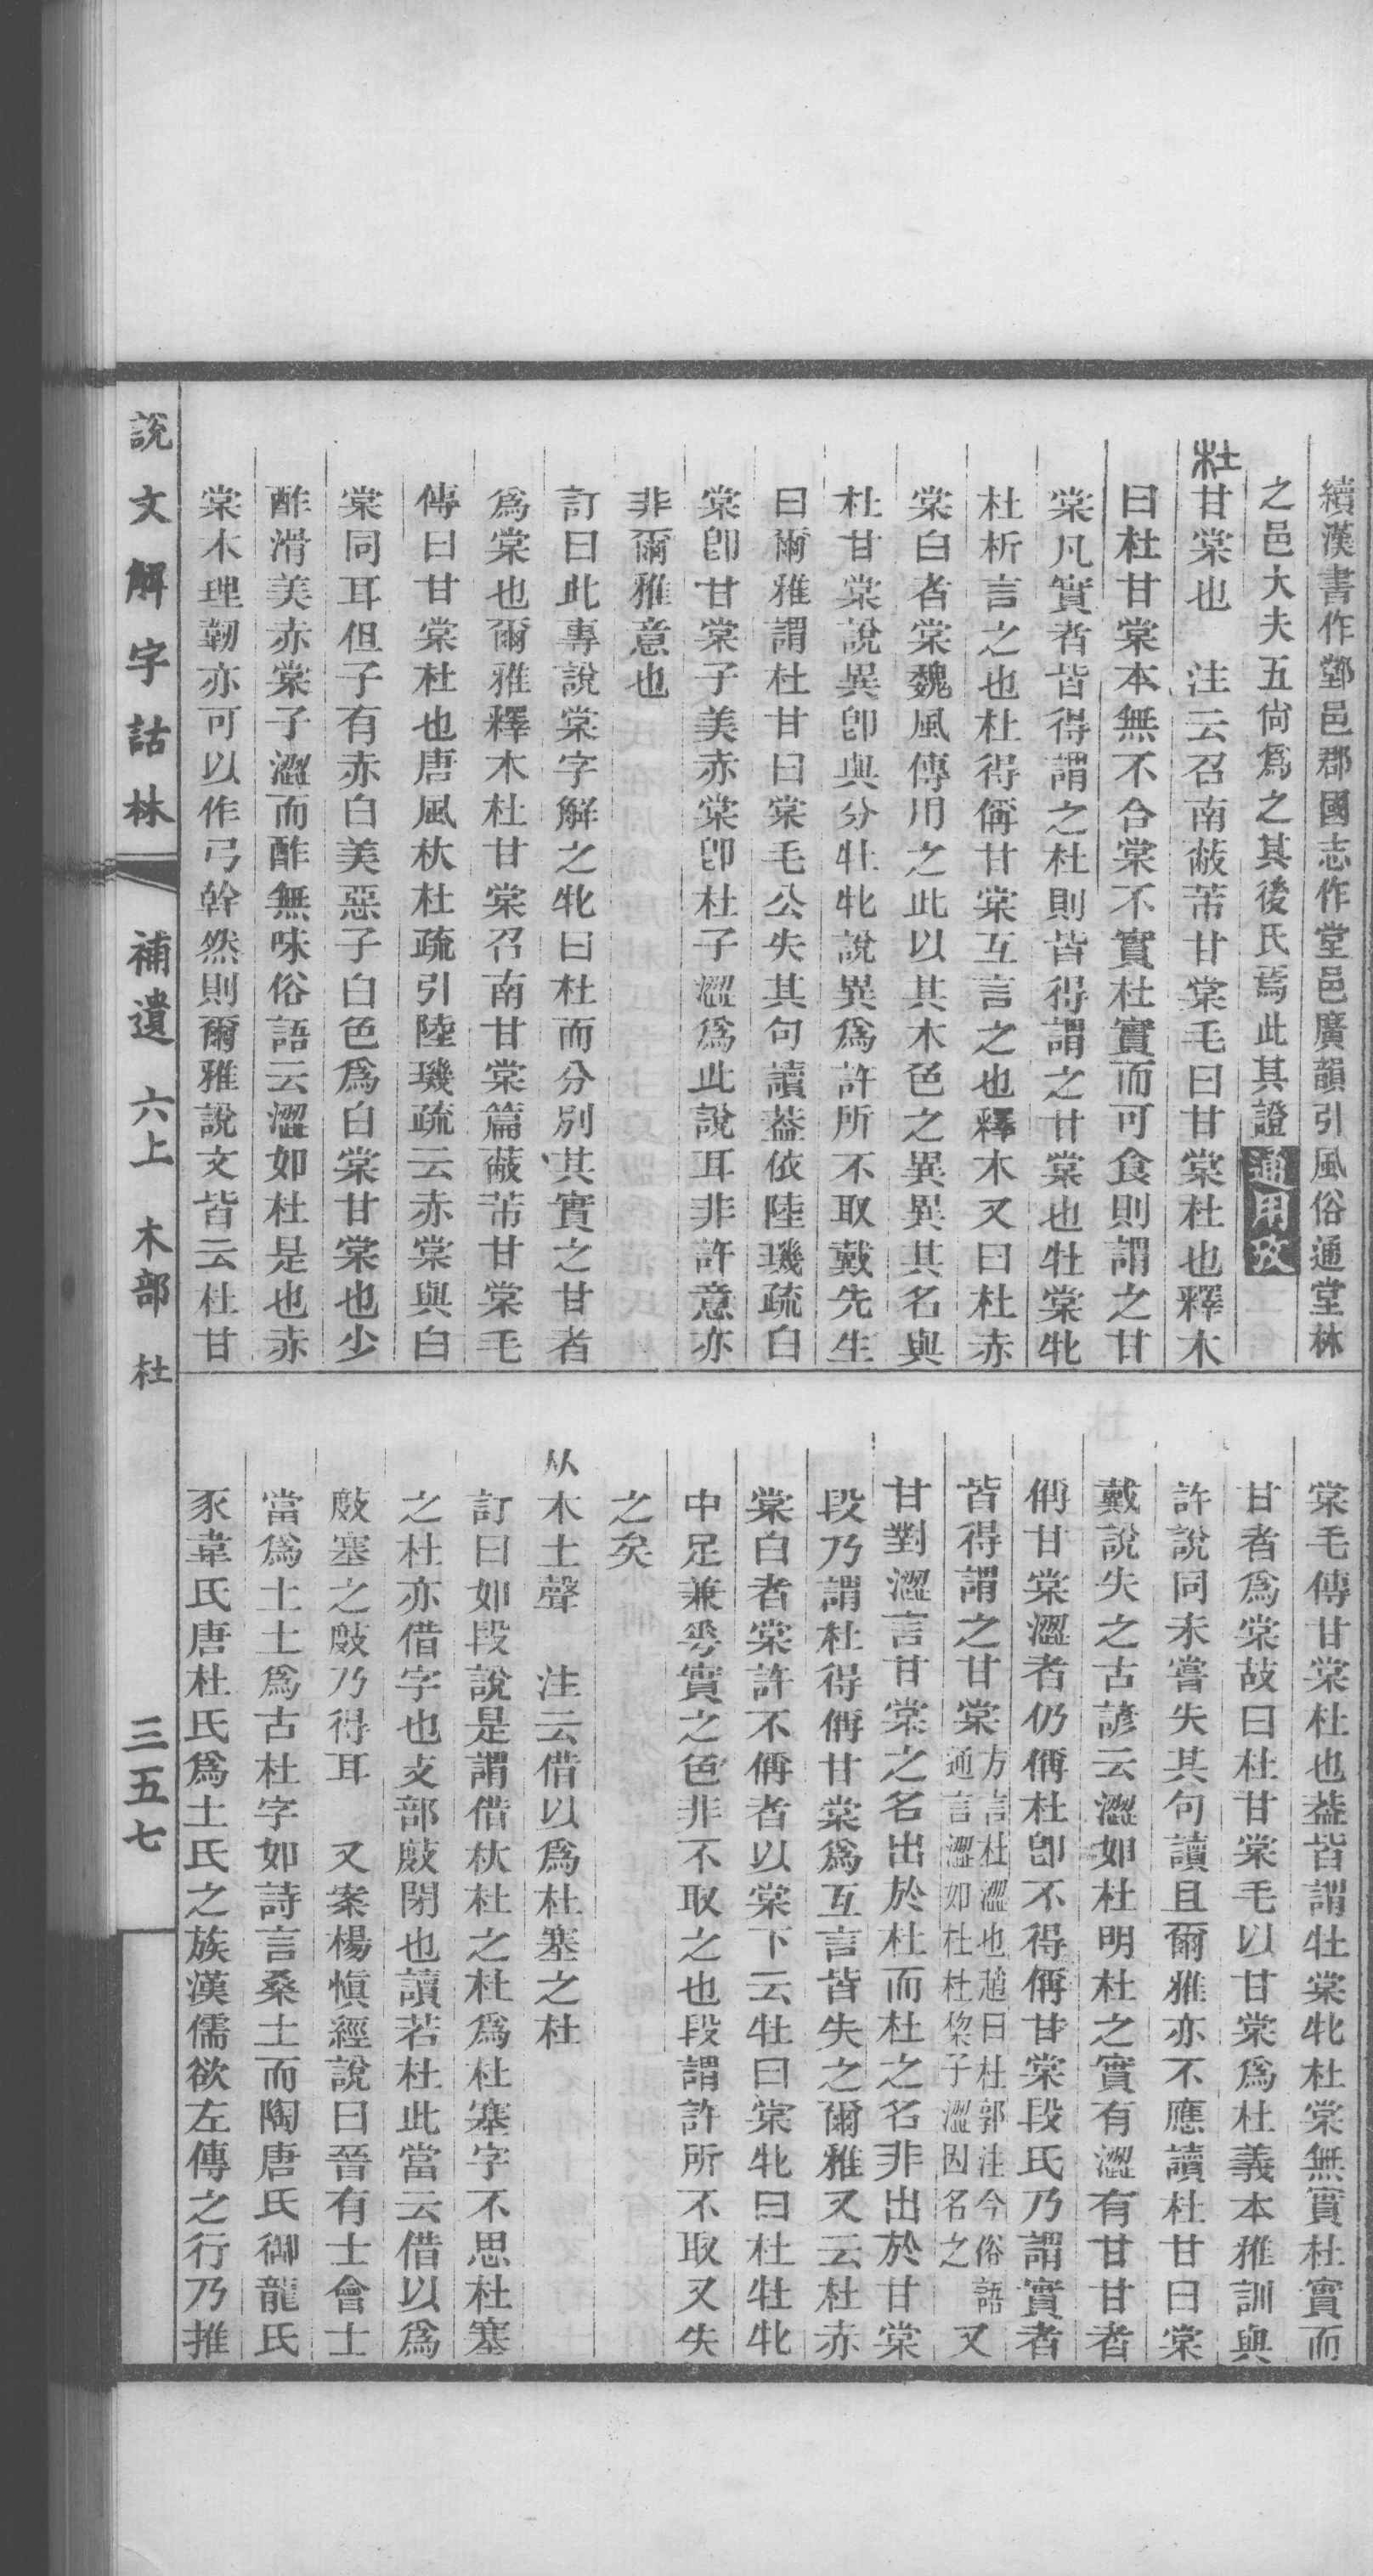 續漢書作鄧邑郡國志作堂邑廣韻引風俗通堂林
之邑大夫五尙爲之其後氏焉此其證通用攷
杜甘棠也　注云召南蔽芾甘棠毛曰甘棠杜也釋木
曰杜甘棠本無不合棠不實杜實而可食則謂之甘
棠凡實者皆得謂之杜則皆得謂之甘棠也牡棠牝
杜析言之也杜得偁甘棠互言之也釋木又曰杜赤
棠白者棠魏風傳用之此以其木色之異異其名與
杜甘棠說異卽與分牡牝說異爲許所不取戴先生
曰爾雅謂杜甘曰棠毛公失其句讀葢依陸璣疏白
棠卽甘棠子美赤棠卽杜子澀爲此說耳非許意亦
非爾雅意也
訂曰此專說棠字解之牝曰杜而分別其實之甘者
爲棠也爾雅釋木杜甘棠召南甘棠篇蔽芾甘棠毛
傳曰甘棠杜也唐風杕杜疏引陸璣疏云赤棠與白
棠同耳但子有赤白美惡子白色爲白棠甘棠也少
酢滑美赤棠子澀而酢無味俗語云澀如杜是也赤
棠木理韌亦可以作弓幹然則爾雅說文皆云杜甘
棠毛傳甘棠杜也葢皆謂牡棠牝杜棠無實杜實而
甘者爲棠故曰杜甘棠毛以甘棠爲杜義本雅訓與
許說同未嘗失其句讀且爾雅亦不應讀杜甘曰棠
戴說失之古諺云澀如杜明杜之實有澀有甘甘者
偁甘棠澀者仍偁杜卽不得偁甘棠段氏乃謂實者
皆得謂之甘棠方言杜澀也趙曰杜郭注今俗語通言澀如杜杜棃子澀因名之又
甘對澀言甘棠之名出於杜而杜之名非出於甘棠
段乃謂杜得偁甘棠爲互言皆失之爾雅又云杜赤
棠白者棠許不偁者以棠下云牡曰棠牝曰杜牡牝
中足兼晐實之色非不取之也段謂許所不取又失
之矣
从木土聲　注云借以爲杜塞之杜
訂曰如段說是謂借杕杜之杜爲杜塞字不思杜塞
之杜亦借字也攴部敗閉也讀若杜此當云借以爲
敗塞之敗乃得耳　又案楊愼經說曰晉有士會士
當爲土土爲古杜字如詩言桑土而陶唐氏御龍氏
豕韋氏唐杜氏爲土氏之族漢儒欲左傳之行乃推
說文解字詁林　補遺　六上　木部　杜　三五七